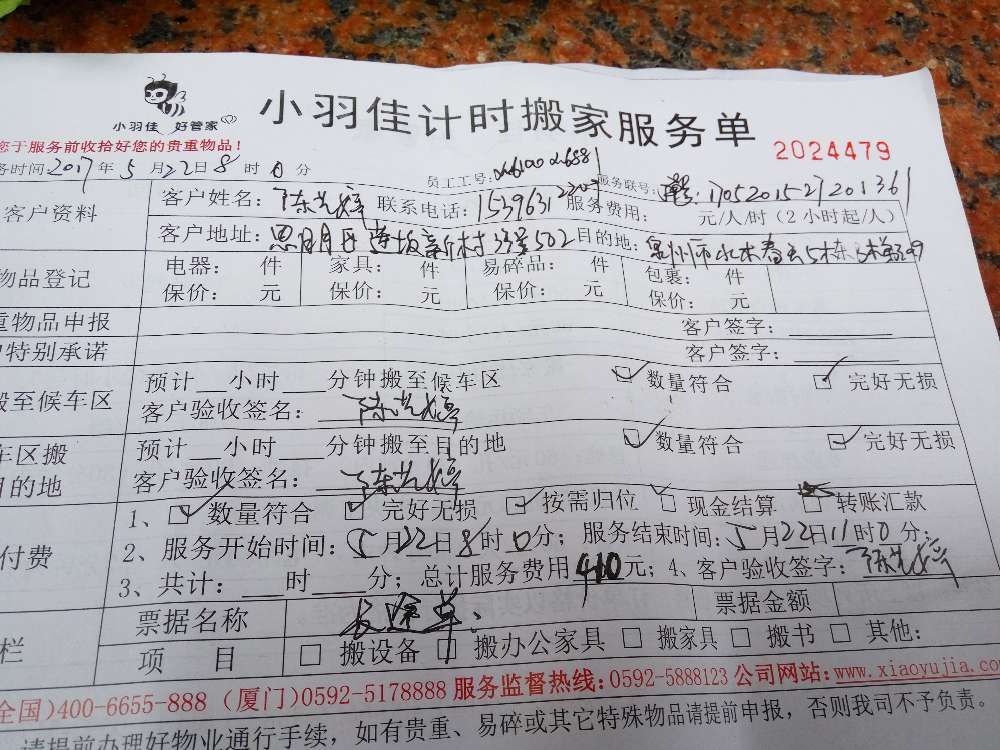 小羽佳 好管家
小羽佳计时搬家服务单
您于服务前收拾好您的贵重物品!
2024479
务时间2017年5月22日8时0分 员工工号: 服务联号:
客户资料 客户姓名: 联系电话: 服务费用: 元/人/时(2小时起/人)
客户地址: 思明区莲坂新村 502 目的地: 泉州市
物品登记 电器: 件 家具: 件 易碎品: 件 包裹: 件
保价: 元 保价: 元 保价: 元 保价: 元
重物品申报 客户签字:
特别承诺 客户签字:
搬至候车区 预计 小时 分钟搬至候车区 数量符合 完好无损
客户验收签名:
车区搬 预计 小时 分钟搬至目的地 数量符合 完好无损
目的地 客户验收签名:
1、 数量符合 完好无损 按需归位 现金结算 转账汇款
付费 2、服务开始时间: 5月22日8时0分; 服务结束时间: 5月22日11时0分;
3、共计: 时 分; 总计服务费用410元; 4、客户验收签字:
票据名称 长途单 票据金额
栏 项 目 搬设备 搬办公家具 搬家具 搬书 其他:
全国)400-6655-888 (厦门)0592-5178888 服务监督热线:0592-5888123 公司网站:www.xiaoyujia.com
请提前办理好物业通行手续,如有贵重、易碎或其它特殊物品请提前申报,否则我司不予负责。